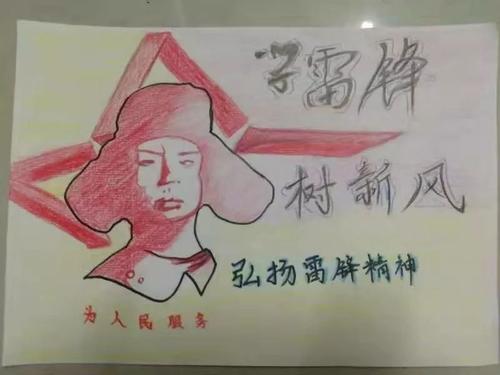 学雷锋
树新风
弘扬雷锋精神
为人民服务